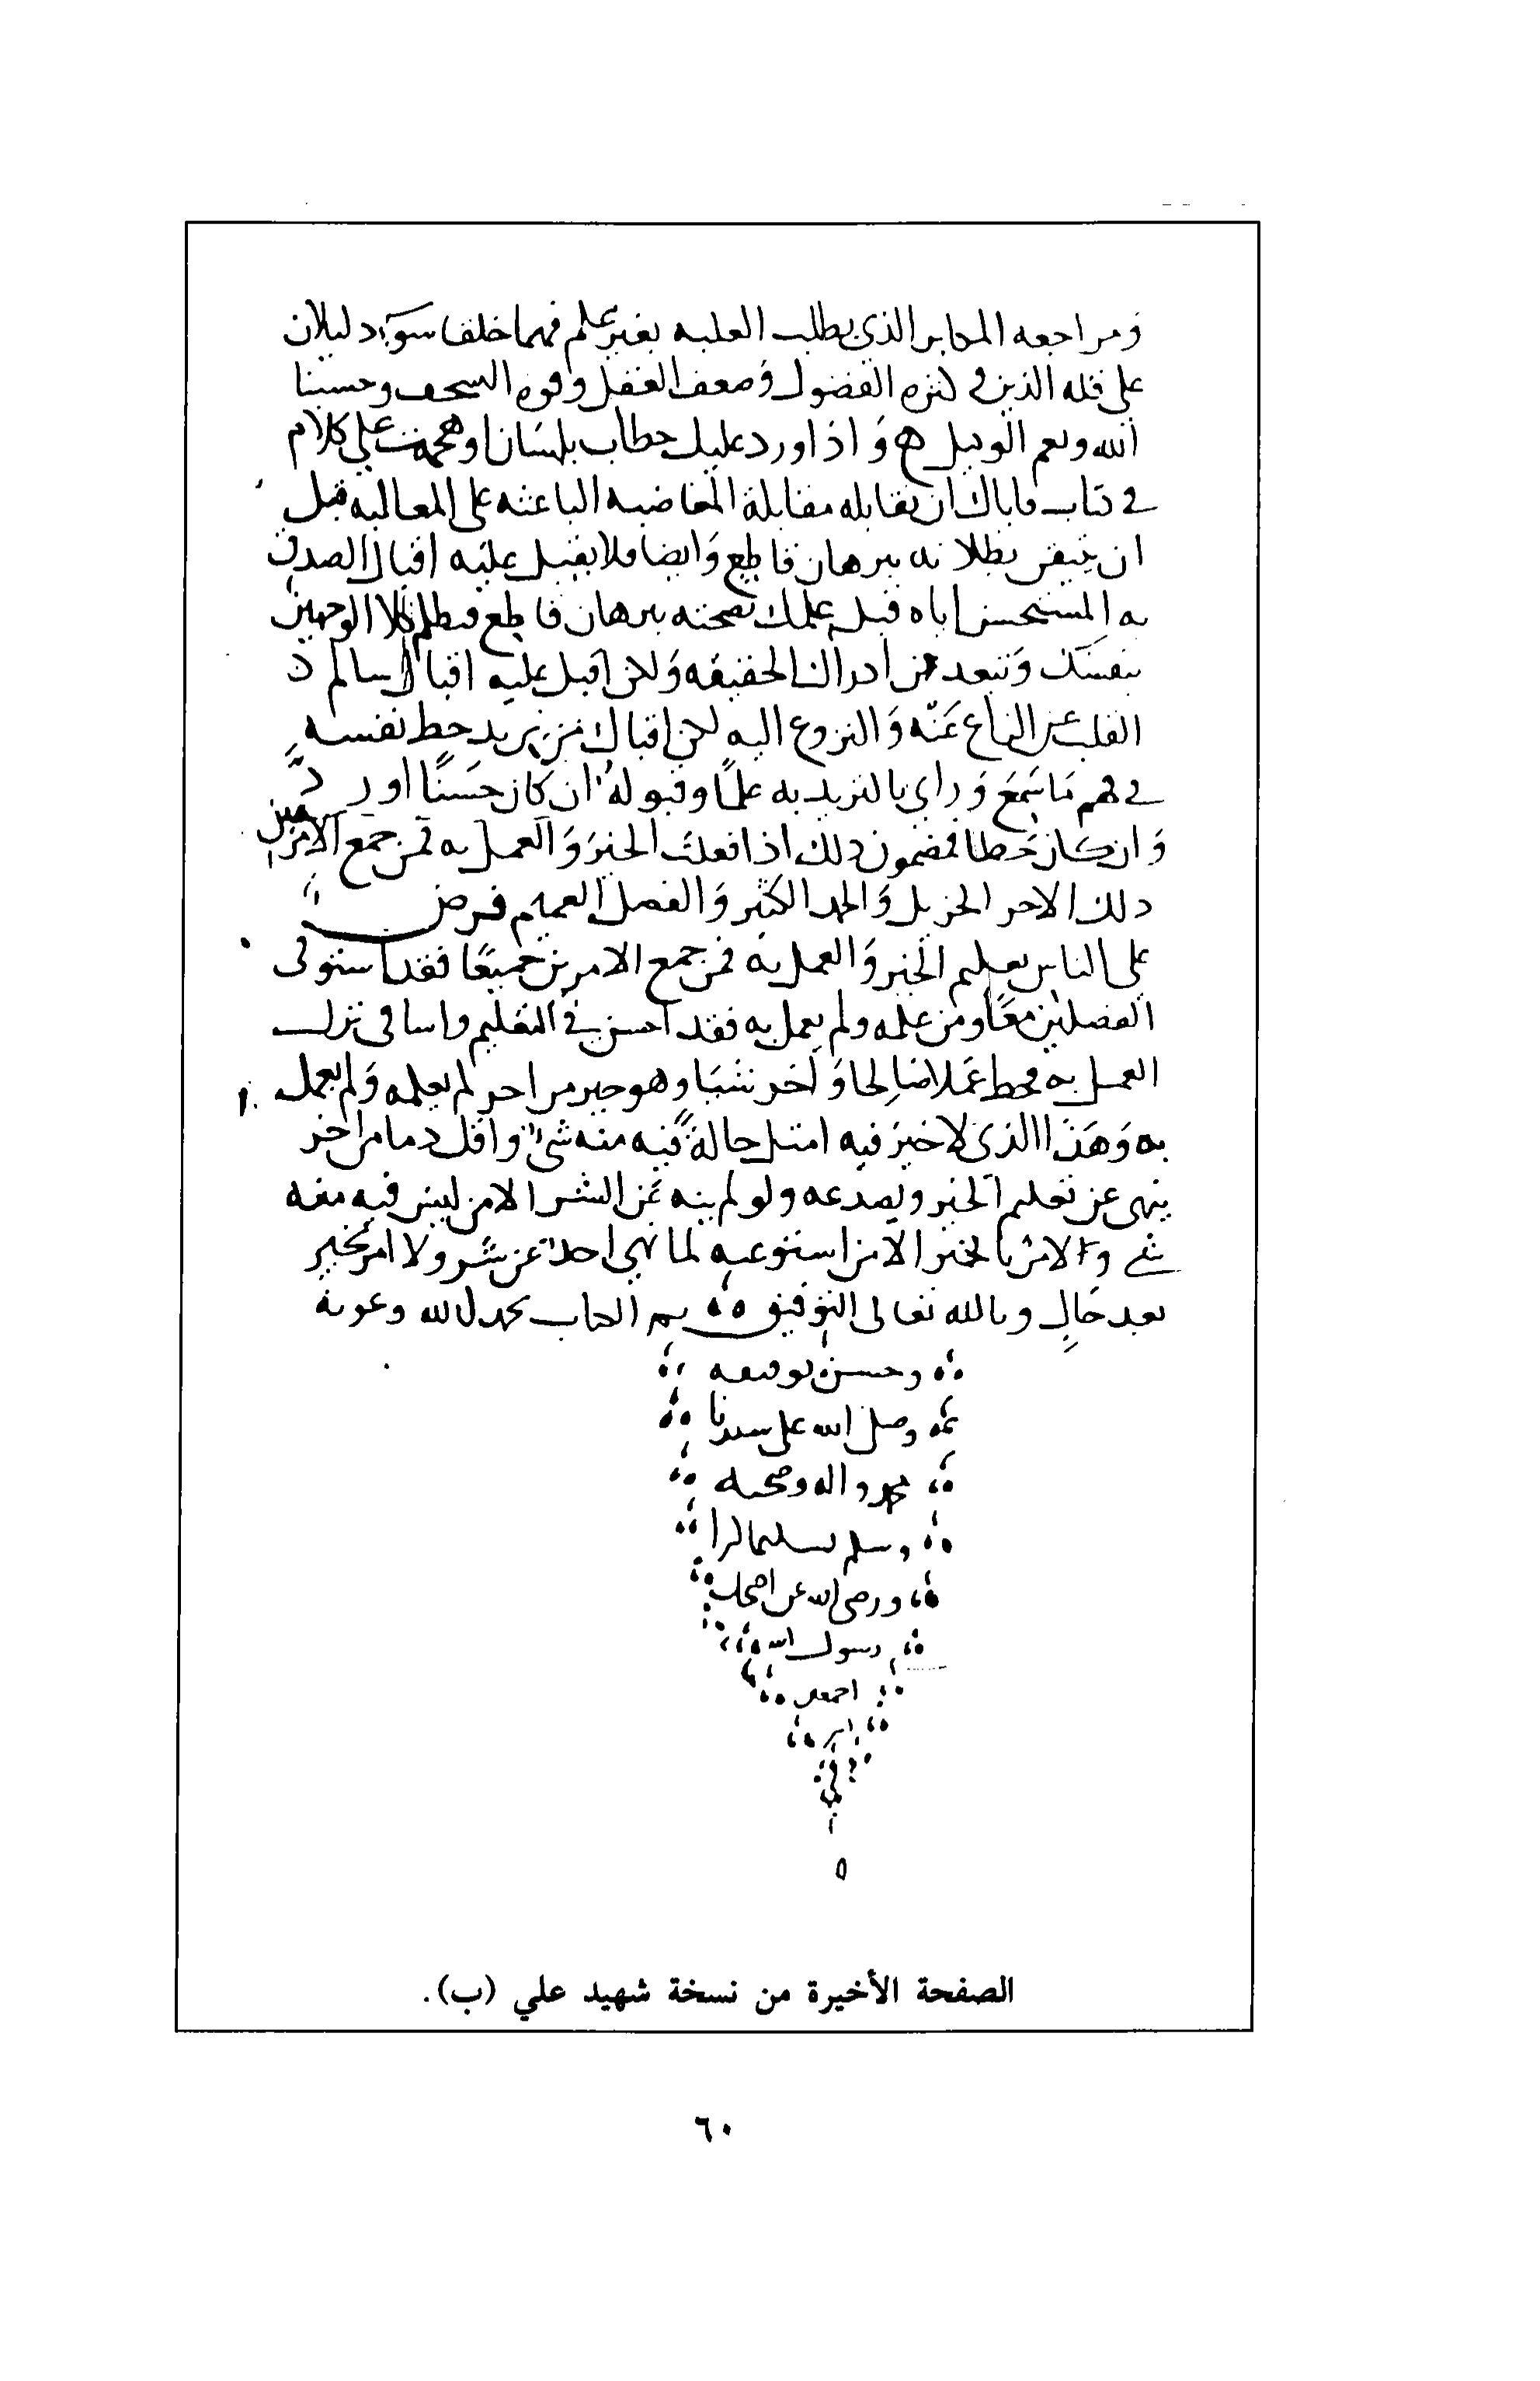 ومراجعه المكابر الذي يطلب الغلبه بغير علم فهما خلقا سوء دليلان
على قله الدين وكثره الفضول وضعف العقل وقوه السخف وحسبنا
الله ونعم الوكيل ھ وَاذا ورد عليك خطاب بلسَان او هجمت على كلام
في كتاب فاياك ان تقابله مقابلة المغاضبه الباعثه على المغالبه قبل
ان تتيقن بطلانه ببرهان قاطع وَايضا فلا تقبل عليه اقبال المصدق
به المستحسن اياه قبل علمك بصحته ببرهان قاطع فتظلم في كلا الوجهين
نفسَك وَتبعد عن ادراك الحقيقه وَلكن اقبل عليه اقبال سالم
القلب عن النزاع عَنْه وَالنزوع اليه لكن اقبال من يريد حظ نفسه
في فهم مَا سَمِعَ وَراي بالتزيد به علمًا وقبوله ان كان حسَنًا او رده
وَان كان خَطا فمضمون ذلك اذا فعلت الخيرَ وَالعمل به فمن جمع الامرين
ذلك الاجر الجزيل وَالحمد الكثير وَالفضل العميم فرض
على الناس تعليم الخير وَالعمل به فمن جمع الامرين جميعًا فقد استوفى
الفضلين معًا ومن علمه ولم يعمل به فقد احسن في التعليم واسا في ترك
العمل به فخلط عَملا صَالحا وَاخر سَيئا وهو خير من اخر لم يعلمه وَلم يعمل
به وَهَذا الذي لا خيرَ فيه امثل حالةً فيه منه شيء واقل ذما من اخر
ينهى عن تعليم الخير ويصد عنه ولو لم ينه عن الشر الا من ليس فيه منه
شي ولا امر بالخير الا من استوعبه لما نهى احد عن شر ولا امر بخير
بعد
وبالله تعالى التوفيق تم الكتاب بحمد الله وعونه
وحسن توفيقه
وصلى الله على سيدنا
محمد واله وصحبه
وسلم تسليما كثيرا
ورضي الله عن اصحاب
رسول الله
اجمعين
امين
الصفحة الأخيرة من نسخة شهيد علي (ب).
٦٠